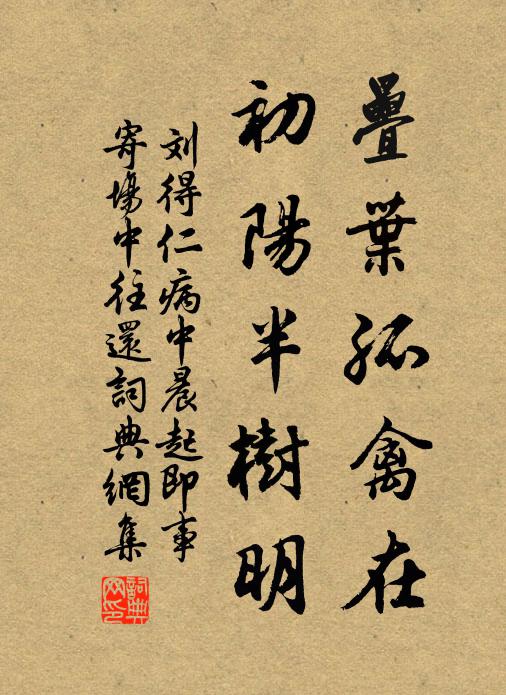 疊葉孤禽在
初陽半樹明
刘得仁病中晨起即事
寄場中往還詞典網集
詞典
网印